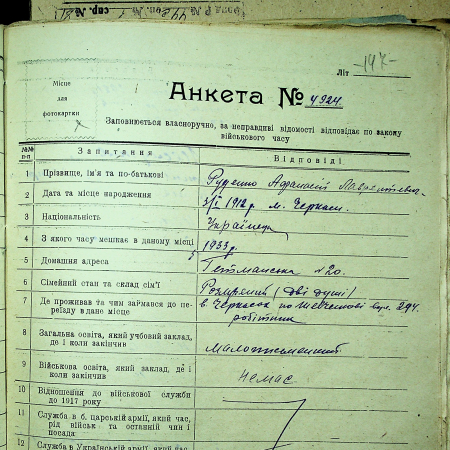 спр. №
Літ -147-
Місце
для
фотокартки
Анкета № 4924
Заповнюється власноручно, за неправдиві відомості відповідає по закону
військового часу
№№ п-п
Запитання
Відповіді
1 Прізвище, ім'я та по-батькові Руденко Афанасій Лаврентієвич
2 Дата та місце народження 3/І 1912 р. м. Черкаси.
3 Національність Українець
4 З якого часу мешкає в даному місці 1933 р.
5 Домашня адреса Гетманська №20.
6 Сімейний стан та склад сім'ї (дві душі)
7 Де проживав та чим займався до пе-
реїзду в дане місце в Черкасах по вул. 294.
робітник
8 Загальна освіта, який учбовий заклад,
де і коли закінчив Малописьменний
9 Військова освіта, який заклад, де і
коли закінчив Немає
10 Відношення до військової служби
до 1917 року
11 Служба в б. царській армії, який час,
рід військ та останній чин і
посада
12 Служба в Українській армії, який час,